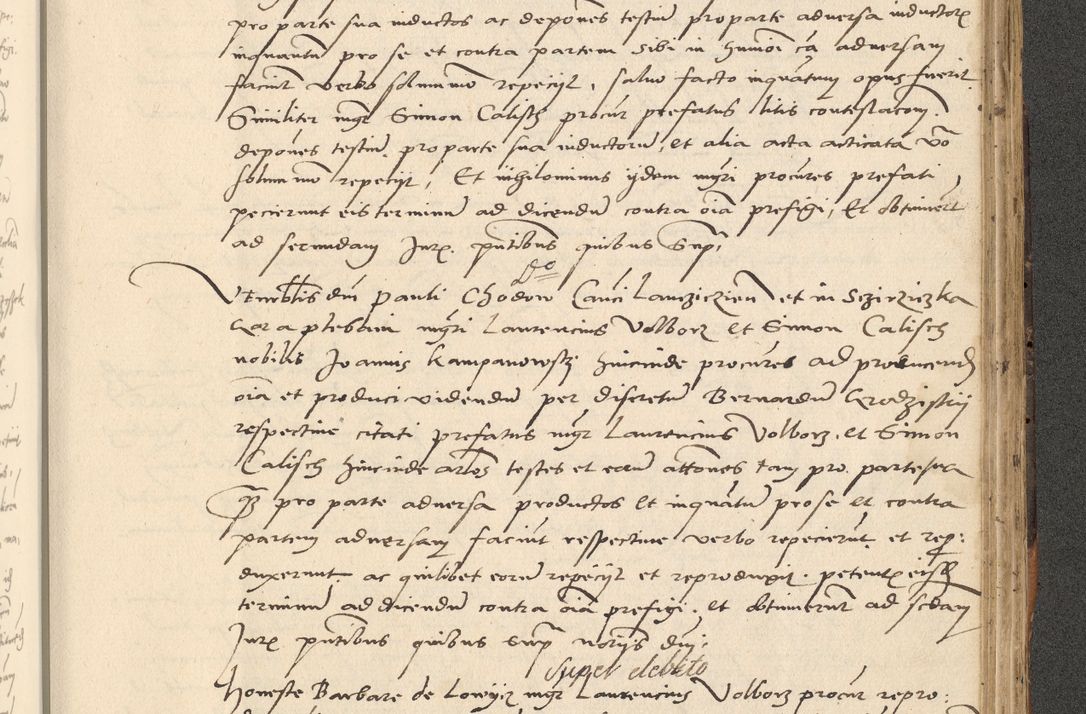 pro parte sua inductos ac depones testium pro parte adversa inductorum
inquantum pro se et contra partem sibi in huiusmodi ca adversam
faciunt verbo solummodo repeciit, salvo facto inquantum opus fuerit
Similiter mgr Simon Calisch procur prefatus litis contestacom
depones testium pro parte sua inductorum, et alia acta acticata vo
solummo repeciit, Et nihilominus iidem mgri procures prefati,
pecierunt eis terminum ad dicendum contra oia prefigi, Et obtinuert
ad secundam Jurx putibus quibus supra
Vener dni Pauli Chodow Canci Lanciciien et in Sczirziczka
Gora plebani mgri Laurencius Volborz et Simon Calisch
nobilis Joannis Kampanowski hincinde procures ad producend
oia et produci videndum per discretum Bernardum Grodziskii
respective citati prefatus mgr Laurencius Volborz et Simon
Calisch hincinde artlos testes et eorum attones tam pro parte sua
qz pro parte adversa productos et inquantum pro se et contra
partem adversam faciunt respective verbo repecierunt et rep:
duxerunt ac quilibet eorum repeciit et reproduxit petentx eisdem
terminum ad dicendum contra oia prefigi et obtinuerunt ad scdam
Jurx putibus quibus supra notariis dni
super debito
Honeste Barbare de Lowycz mgr Laurencius Volborz procur repro: